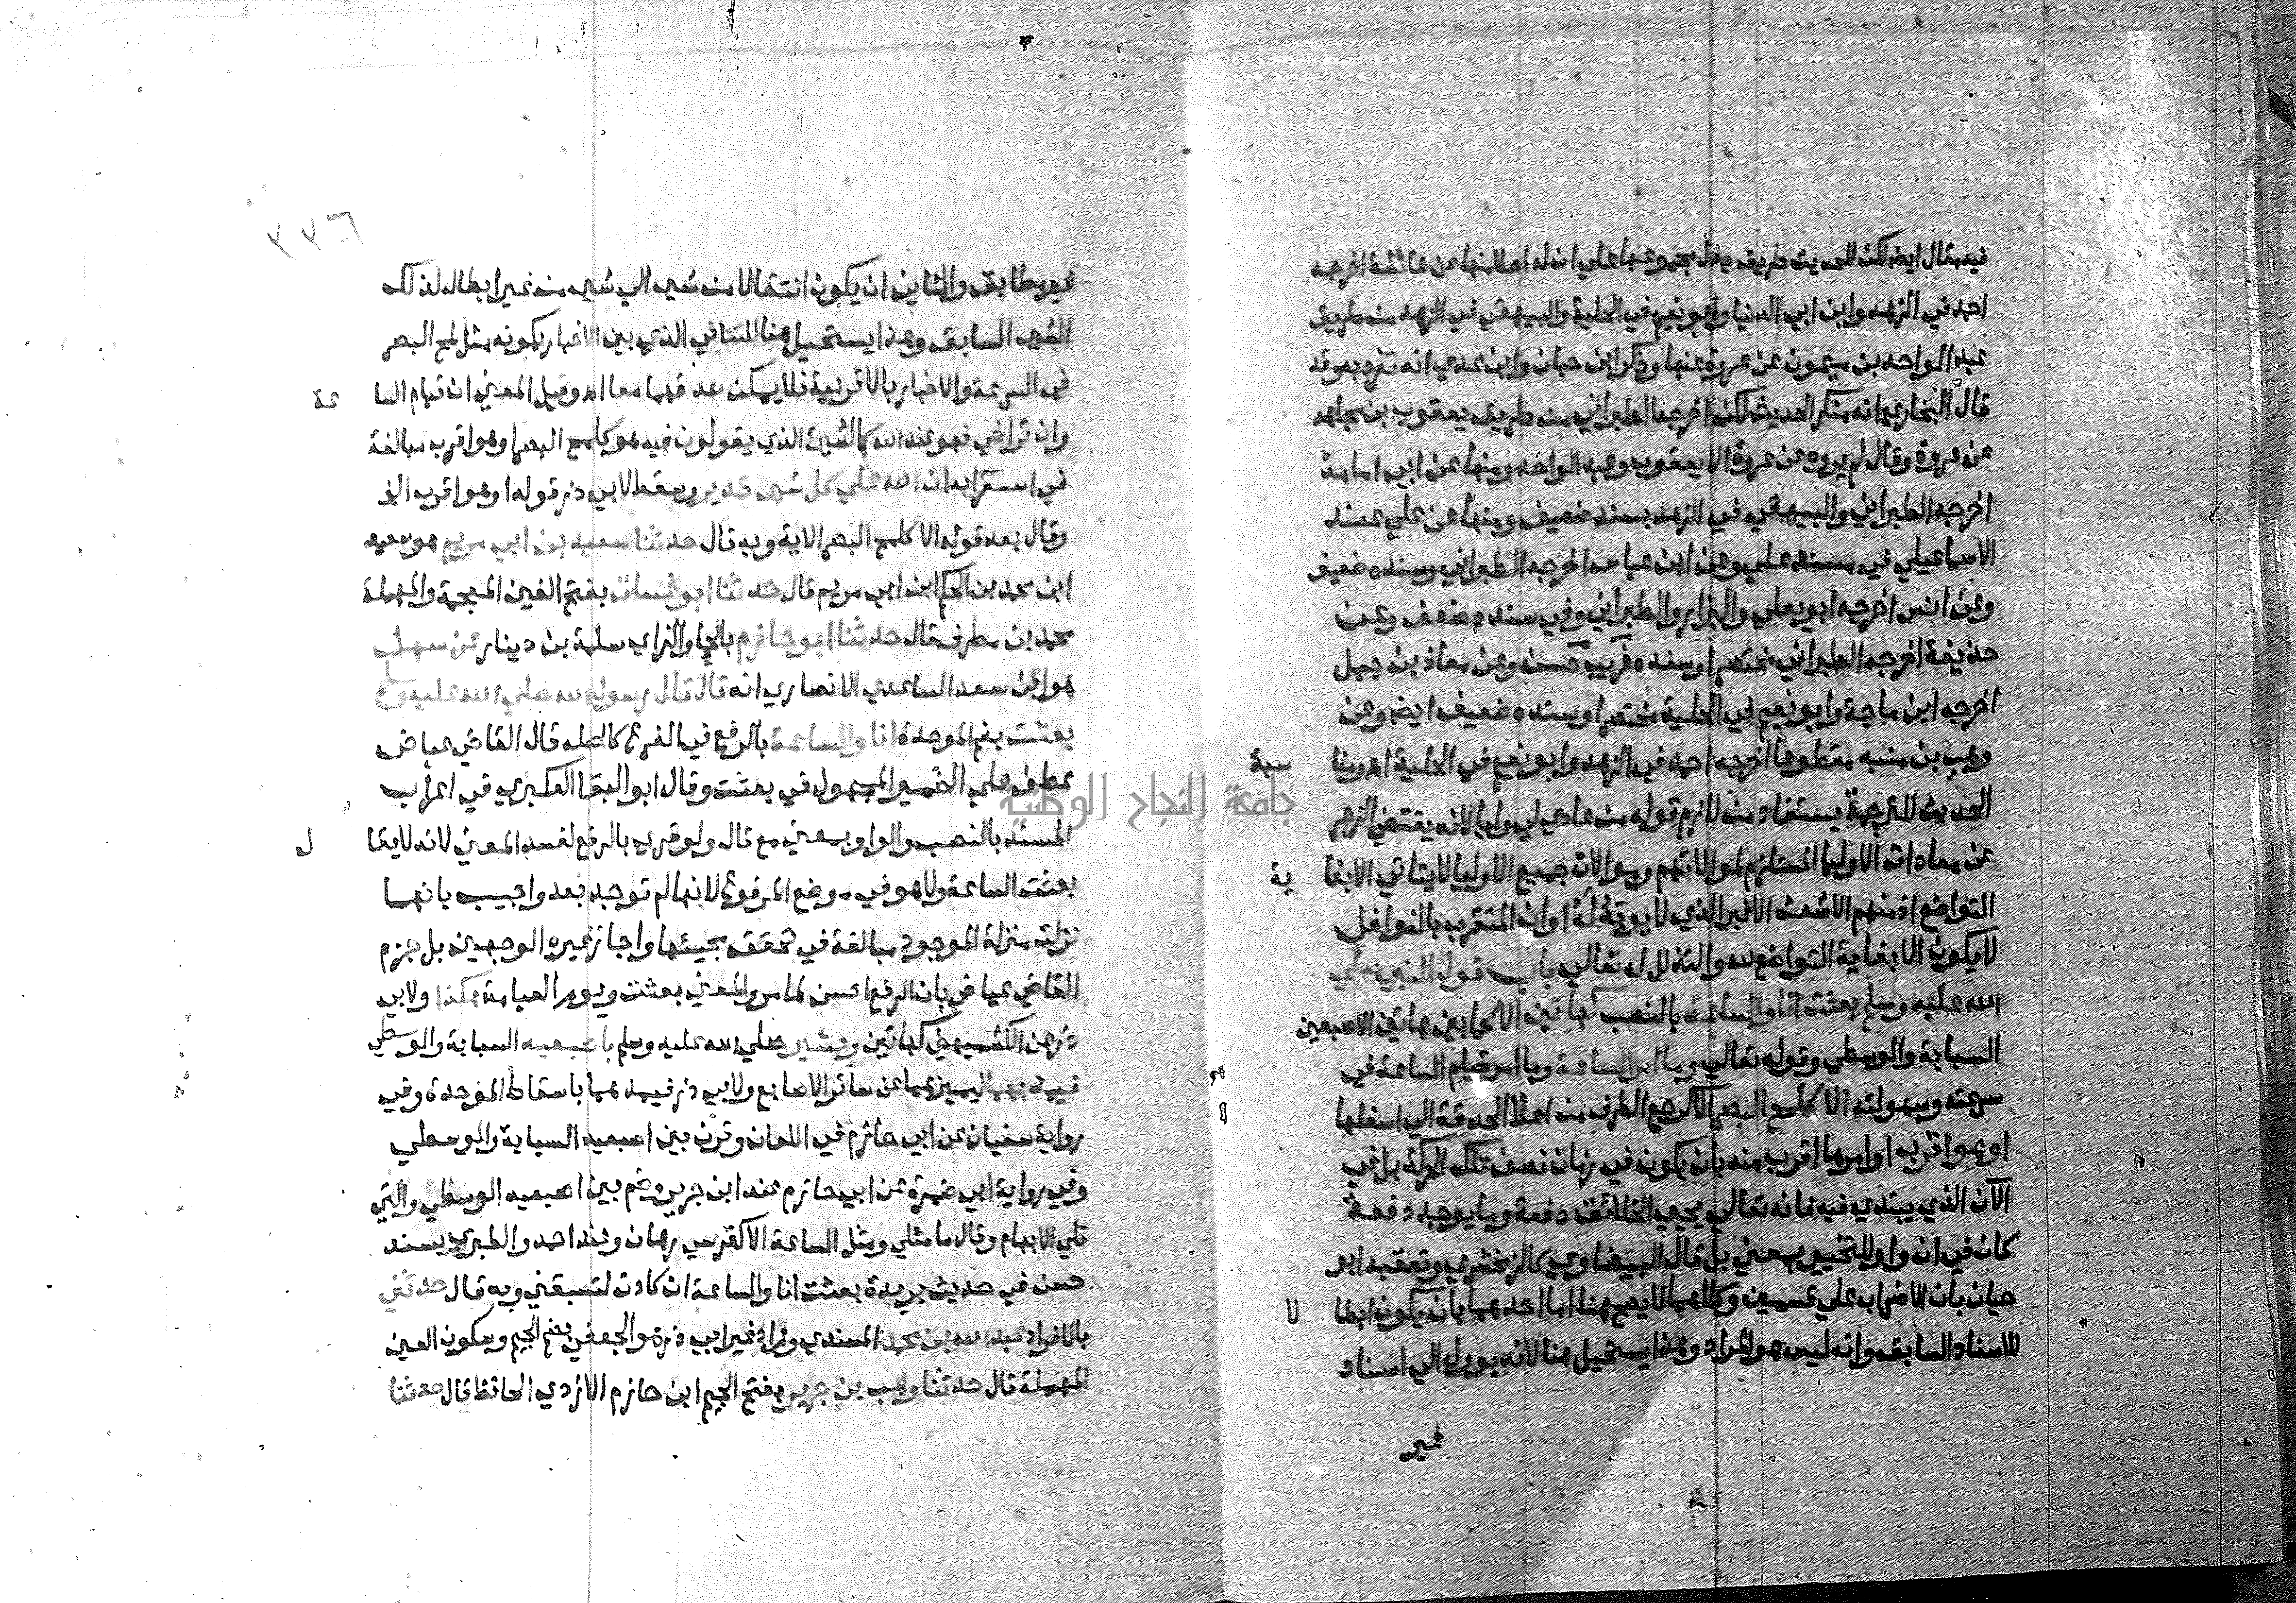 فيه مقال ايضا لكن للحديث طريق يدل مجموعها علي ان له اصلا منها عن عائشة اخرجه
احمد في الزهد وابن ابي الدنيا وابو نعيم في الحلية والبيهقي في الزهد من طريق
عبد الواحد بن ميمون عن عروة عنها وذكر ابن حبان وابن عدي انه تفرد به وقد
قال البخاري انه منكر الحديث لكن اخرجه الطبراني من طريق يعقوب بن مجاهد
عن عروة وقال لم يروه عن عروة الا يعقوب وعبد الواحد ومنها عن ابي امامة
اخرجه الطبراني والبيهقي في الزهد بسند ضعيف ومنها عن علي عند
الاسماعيلي في مسند علي وعن ابن عباس اخرجه الطبراني وسنده ضعيف
وعن انس اخرجه ابو يعلي والبزار والطبراني وفي سنده ضعف وعن
حذيفة اخرجه الطبراني مختصرا وسنده غريب حسن وعن معاذ بن جبل
اخرجه ابن ماجة وابو نعيم في الحلية مختصرا وسنده ضعيف ايضا وعن
وهب بن منبه مقطوعا اخرجه احمد في الزهد وابو نعيم في الحلية اهـ ومنا سبة
الحديث للترجمة يستفاد من لازم قوله من عادي لي وليا لانه يقتضي الزجر
عن معاداة الاوليا المستلزم لموالاتهم وموالاة جميع الاوليا لا يتاتي الا بغا ية
التواضع اذ منهم الاشعث الاغبر الذي لا يوبه له او ان المتقرب بالنوافل
لا يكون الا بغاية التواضع لله والتذلل له تعالي باب قول النبي صلي
الله عليه وسلم بعثت انا والساعة بالنصب كهاتين اي كما بين هاتين الاصبعين
السبابة والوسطي وقوله تعالي وما امر الساعة وما امر قيام الساعة في
سرعته وسهولته الا كلمح البصر الا كرجع الطرف من اعلا الحدقة الي اسفلها
او هو اقرب او امرها اقرب منه بان يكون في زمان نصف تلك الحركة بل في
الآن الذي يبتدي فيه فانه تعالي يحيي الخلائق دفعة وما يوجد دفعة
كان في ان واو للتخيير بمعني بل قال البيضاوي كالزمخشري وتعقبه ابو
حيان بان الاضراب علي قسمين وكلاهما لا يصح هنا اما احدهما بان يكون ابطا لا
للاسناد السابق وانه ليس هو المراد وهذا يستحيل هنا لانه يوول الي اسناد
غير
٣٣٦
غير مطابق والثاني ان يكون انتقالا من شي الي شي من غير ابطال لذلك
الشي السابق وهذا يستحيل هنا للتنافي الذي بين الاخبار بكونه مثل لمح البصر
في السرعة والاخبار بالاقربية فلا يمكن صدقهما معا اهـ وقيل المعني ان قيام السا عة
وان تراخي فهو عند الله كالشي الذي يقولون فيه هو كلمح البصر او هو اقرب مبالغة
في استقرابه ان الله علي كل شي قدير وسقط لابي ذر قوله او هو اقرب الخ
وقال بعد قوله الا كلمح البصر الاية وبه قال حدثنا سعيد بن ابي مريم هو سعيد
ابن محمد بن الحكم ابن ابي مريم قال حدثنا ابو غسان بفتح الغين المعجمة والمهملة
محمد بن مطرف قال حدثنا ابو حازم بالحا والزاي سلمة بن دينار عن سهل
هو ابن سعد الساعدي الانصاري انه قال قال رسول الله صلي الله عليه وسلم
بعثت بضم الموحدة انا والساعة بالرفع في الفرع كاصله قال القاضي عياض
عطف علي الضمير المجهول في بعثت وقال ابو البقا العكبري في اعراب
المسند بالنصب والواو بمعني مع قال ولو قري بالرفع لفسد المعني لانه لا يقا ل
بعثت الساعة ولا هو في موضع المرفوع لانها لم توجد بعد واجيب بانها
نزلت منزلة الموجود مبالغة في تحقق مجيئها واجاز غيره الوجهين بل جزم
القاضي عياض بان الرفع احسن لما مر والمعني بعثت ويوم القيامة هكذا ولابي
ذر عن الكشميهني كهاتين ويشير صلي الله عليه وسلم باصبعيه السبابة والوسطي
فيمد بهما ليميزهما عن سائر الاصابع ولابي ذر فيمدهما باسقاط الموحدة وفي
رواية سفيان عن ابي حازم في اللعان وقرن بين اصبعيه السبابة والوسطي
وفي رواية ابي ضمرة عن ابي حازم عند ابن جرير وضم بين اصبعيه الوسطي والتي
تلي الابهام وقال ما مثلي ومثل الساعة الا كفرسي رهان وعند احمد والطبري بسند
حسن في حديث بريدة بعثت انا والساعة ان كادت لتسبقني وبه قال حدثني
بالافراد عبد الله بن محمد المسندي وزاد غير ابي ذر هو الجعفي بضم الجيم وسكون العين
المهملة قال حدثنا وهب بن جرير بفتح الجيم ابن حازم الازدي الحافظ قال حدثنا
جامعة النجاح الوطنية